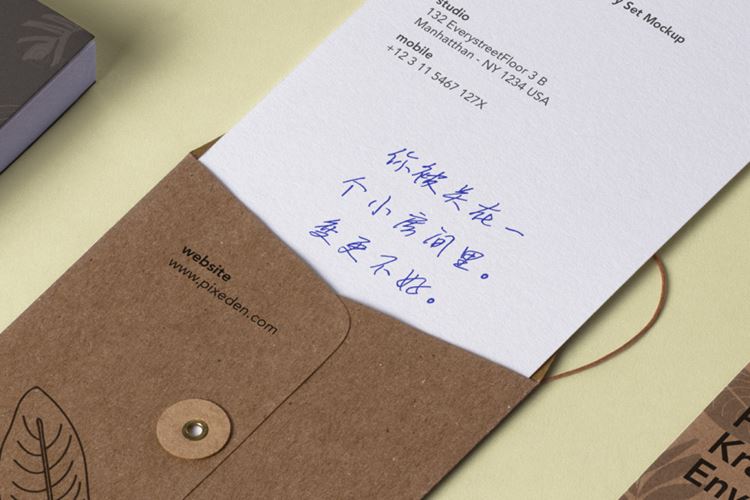 y Set Mockup
studio
132 EverystreetFloor 3 B
Manhatthan - NY 1234 USA
mobile
+12 3 11 5467 127X
你被关在一
个小房间里。
变更不好。
website
www.pixeden.com
Kr
Env